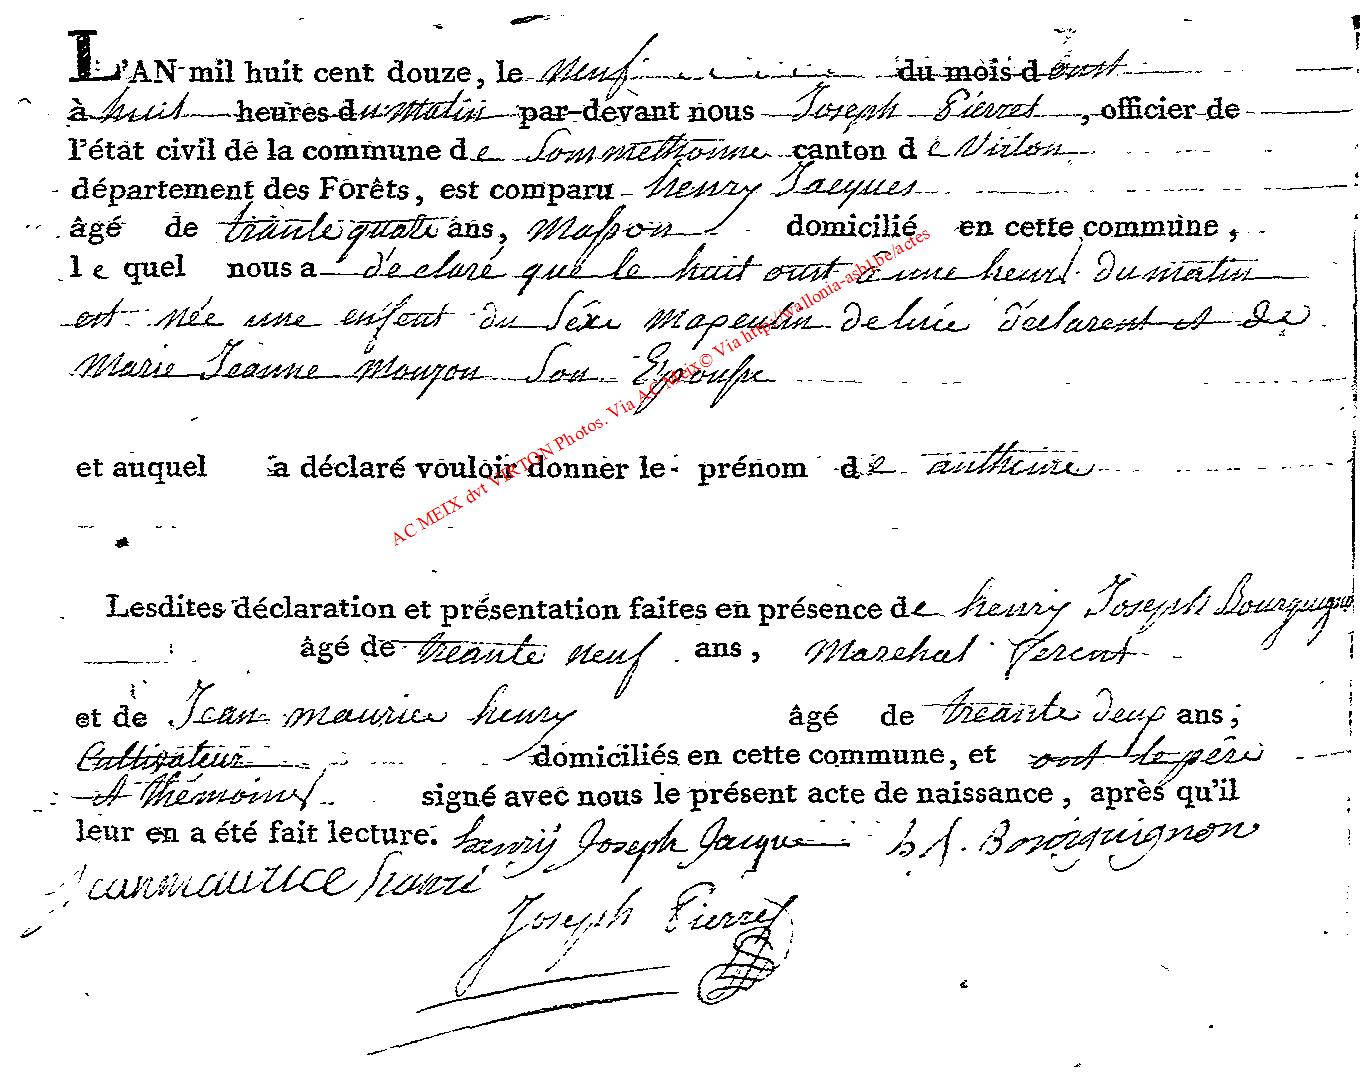 L'AN mil huit cent douze, le neuf du mois d'oust
à huit heures du matin par-devant nous Joseph Pierret, officier de
l'état civil de la commune de Sommethonne canton de Virton
département des Forêts, est comparu henry Jacques
âgé de trante quatre ans, Masson domicilié en cette commune,
le quel nous a déclaré que le huit oust à une heure du matin
est née une enfant du Séxe masculin de luie déclarent et de
Marie Jeanne Mouzon Son Epousse
et auquel a déclaré vouloir donner le prénom de
AC MEIX dvt VIRTON Photos. Via AC Meix© Via http://wallonia-asbl.be/actes
Lesdites déclaration et présentation faites en présence de henry Joseph Bourguignon
âgé de treante neuf ans, Marehal ferent
et de Jean maurice henry âgé de treante deux ans;
Cultivateur domiciliés en cette commune, et ont le père
et thémoins signé avec nous le présent acte de naissance, après qu'il
leur en a été fait lecture. henrij Joseph Jacque h J. Bourguignon
Jeanmaurice hanri
Joseph Pierret